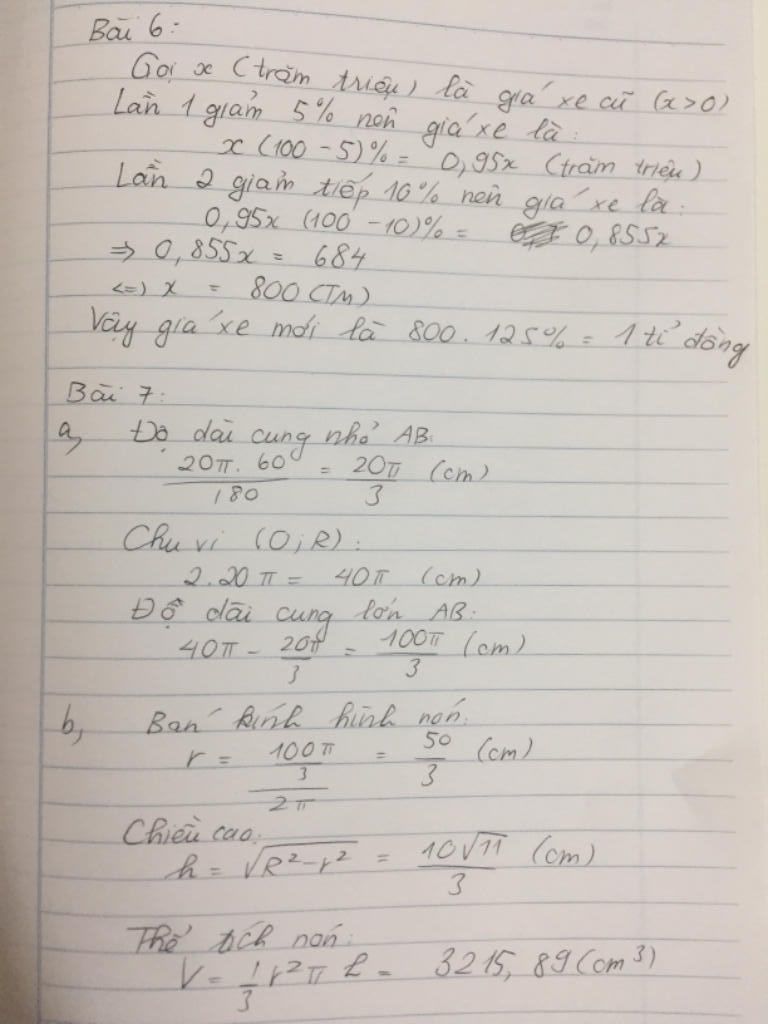 Bài 6:
Gọi x (trăm triệu) là giá xe cũ (x > 0)
Lần 1 giảm 5% nên giá xe là:
x (100 - 5)% = 0,95x (trăm triệu)
Lần 2 giảm tiếp 10% nên giá xe là:
0,95x (100 - 10)% = 0,855x
⇒ 0,855x = 684
<=> x = 800 (TM)
Vậy giá xe mới là 800 . 125% = 1 tỉ đồng
Bài 7:
a, Độ dài cung nhỏ AB:
20π . 60 / 180 = 20π / 3 (cm)
Chu vi (O; R):
2.20π = 40π (cm)
Độ dài cung lớn AB:
40π - 20π / 3 = 100π / 3 (cm)
b, Bán kính hình nón:
r = (100π / 3) / 2π = 50 / 3 (cm)
Chiều cao:
h = √(R² - r²) = 10√11 / 3 (cm)
Thể tích nón:
V = 1/3 r² π h = 3215,89 (cm³)